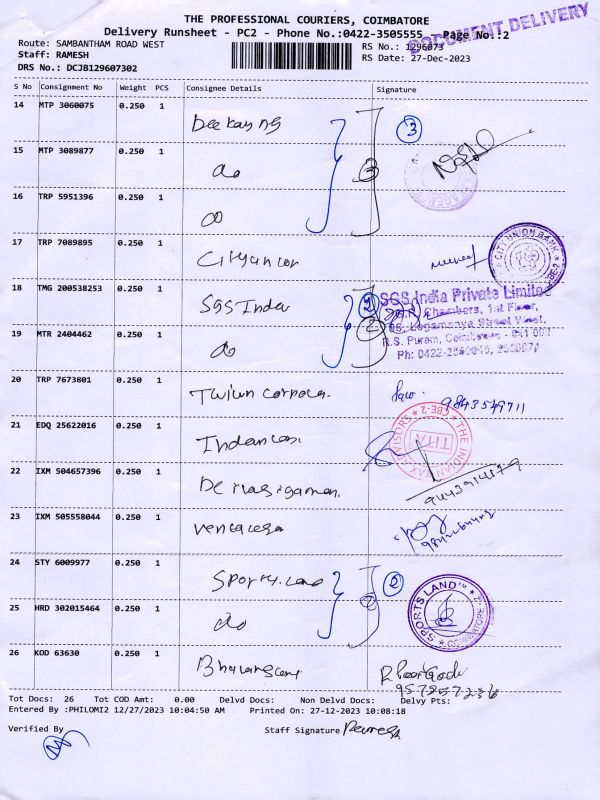 THE PROFESSIONAL COURIERS, COIMBATORE
Delivery Runsheet - PC2 - Phone No.:0422-3505555 Page No.:2
DOCUMENT DELIVERY
Route: SAMBANTHAM ROAD WEST RS No.: 1296073
Staff: RAMESH RS Date: 27-Dec-2023
DRS No.: DCJB129607302
S No Consignment No Weight PCS Consignee Details Signature
14 MTP 3060075 0.250 1
3
15 MTP 3089877 0.250 1 do
3
16 TRP 5951396 0.250 1 do
17 TRP 7089895 0.250 1
CITY UNION BANK
18 TMG 200538253 0.250 1 SGS India 2
SGS India Private Limited
Chambers, 1st Floor,
Logamanya Street West,
19 MTR 2404462 0.250 1 do 2
R.S. Puram, Coimbatore - 641 002
Ph: 0422-
20 TRP 7673801 0.250 1
9843549711
21 EDQ 25622016 0.250 1
THE INDIAN TAX ADVISORS CBE-2
22 IXM 504657396 0.250 1
23 IXM 505558044 0.250 1
24 STY 6009977 0.250 1 Sports Land 2
SPORTS LAND COIMBATORE
25 HRD 302015464 0.250 1 do 2
26 KOD 63630 0.250 1
Tot Docs: 26 Tot COD Amt: 0.00 Delvd Docs: Non Delvd Docs: Delvy Pts:
Entered By :PHILOMI2 12/27/2023 10:04:50 AM Printed On: 27-12-2023 10:08:18
Verified By Staff Signature Ramesh